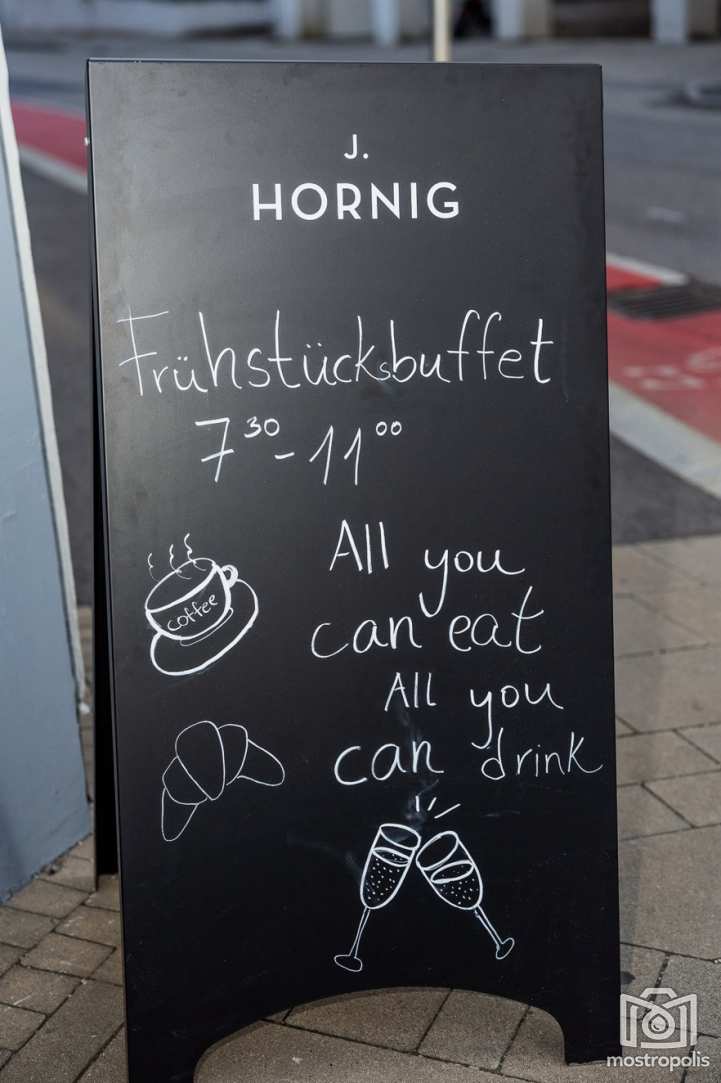 J.
HORNIG
Frühstücksbuffet
7³⁰-11⁰⁰
All you
can eat
coffee
All you
can drink
mostropolis